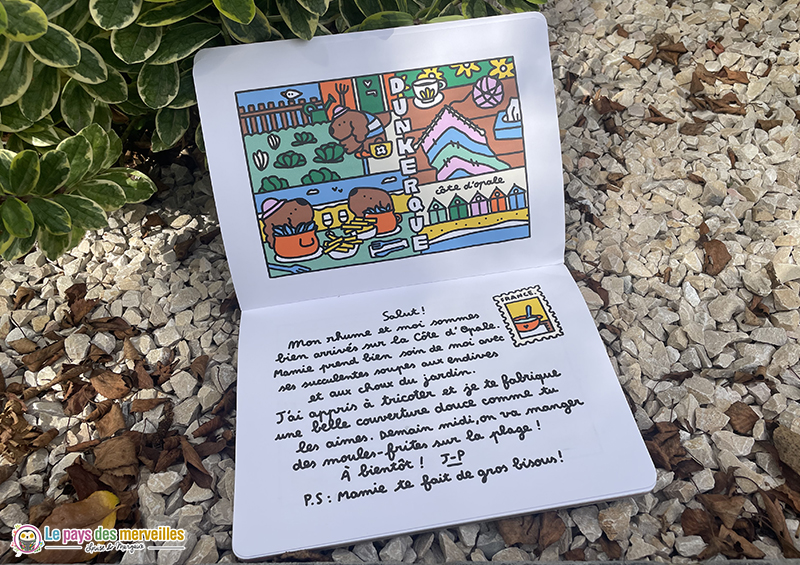 DUNKERQUE
côte d'opale
FRANCE.
Salut!
Mon rhume et moi sommes
bien arrivés sur la Côte d'Opale.
Mamie prend bien soin de moi avec
ses succulentes soupes aux endives
et aux choux du jardin.
J'ai appris à tricoter et je te fabrique
une belle couverture douce comme tu
les aimes. Demain midi, on va manger
des moules-frites sur la plage !
À bientôt ! J-P
P.S : Mamie te fait de gros bisous !
Le pays des merveilles